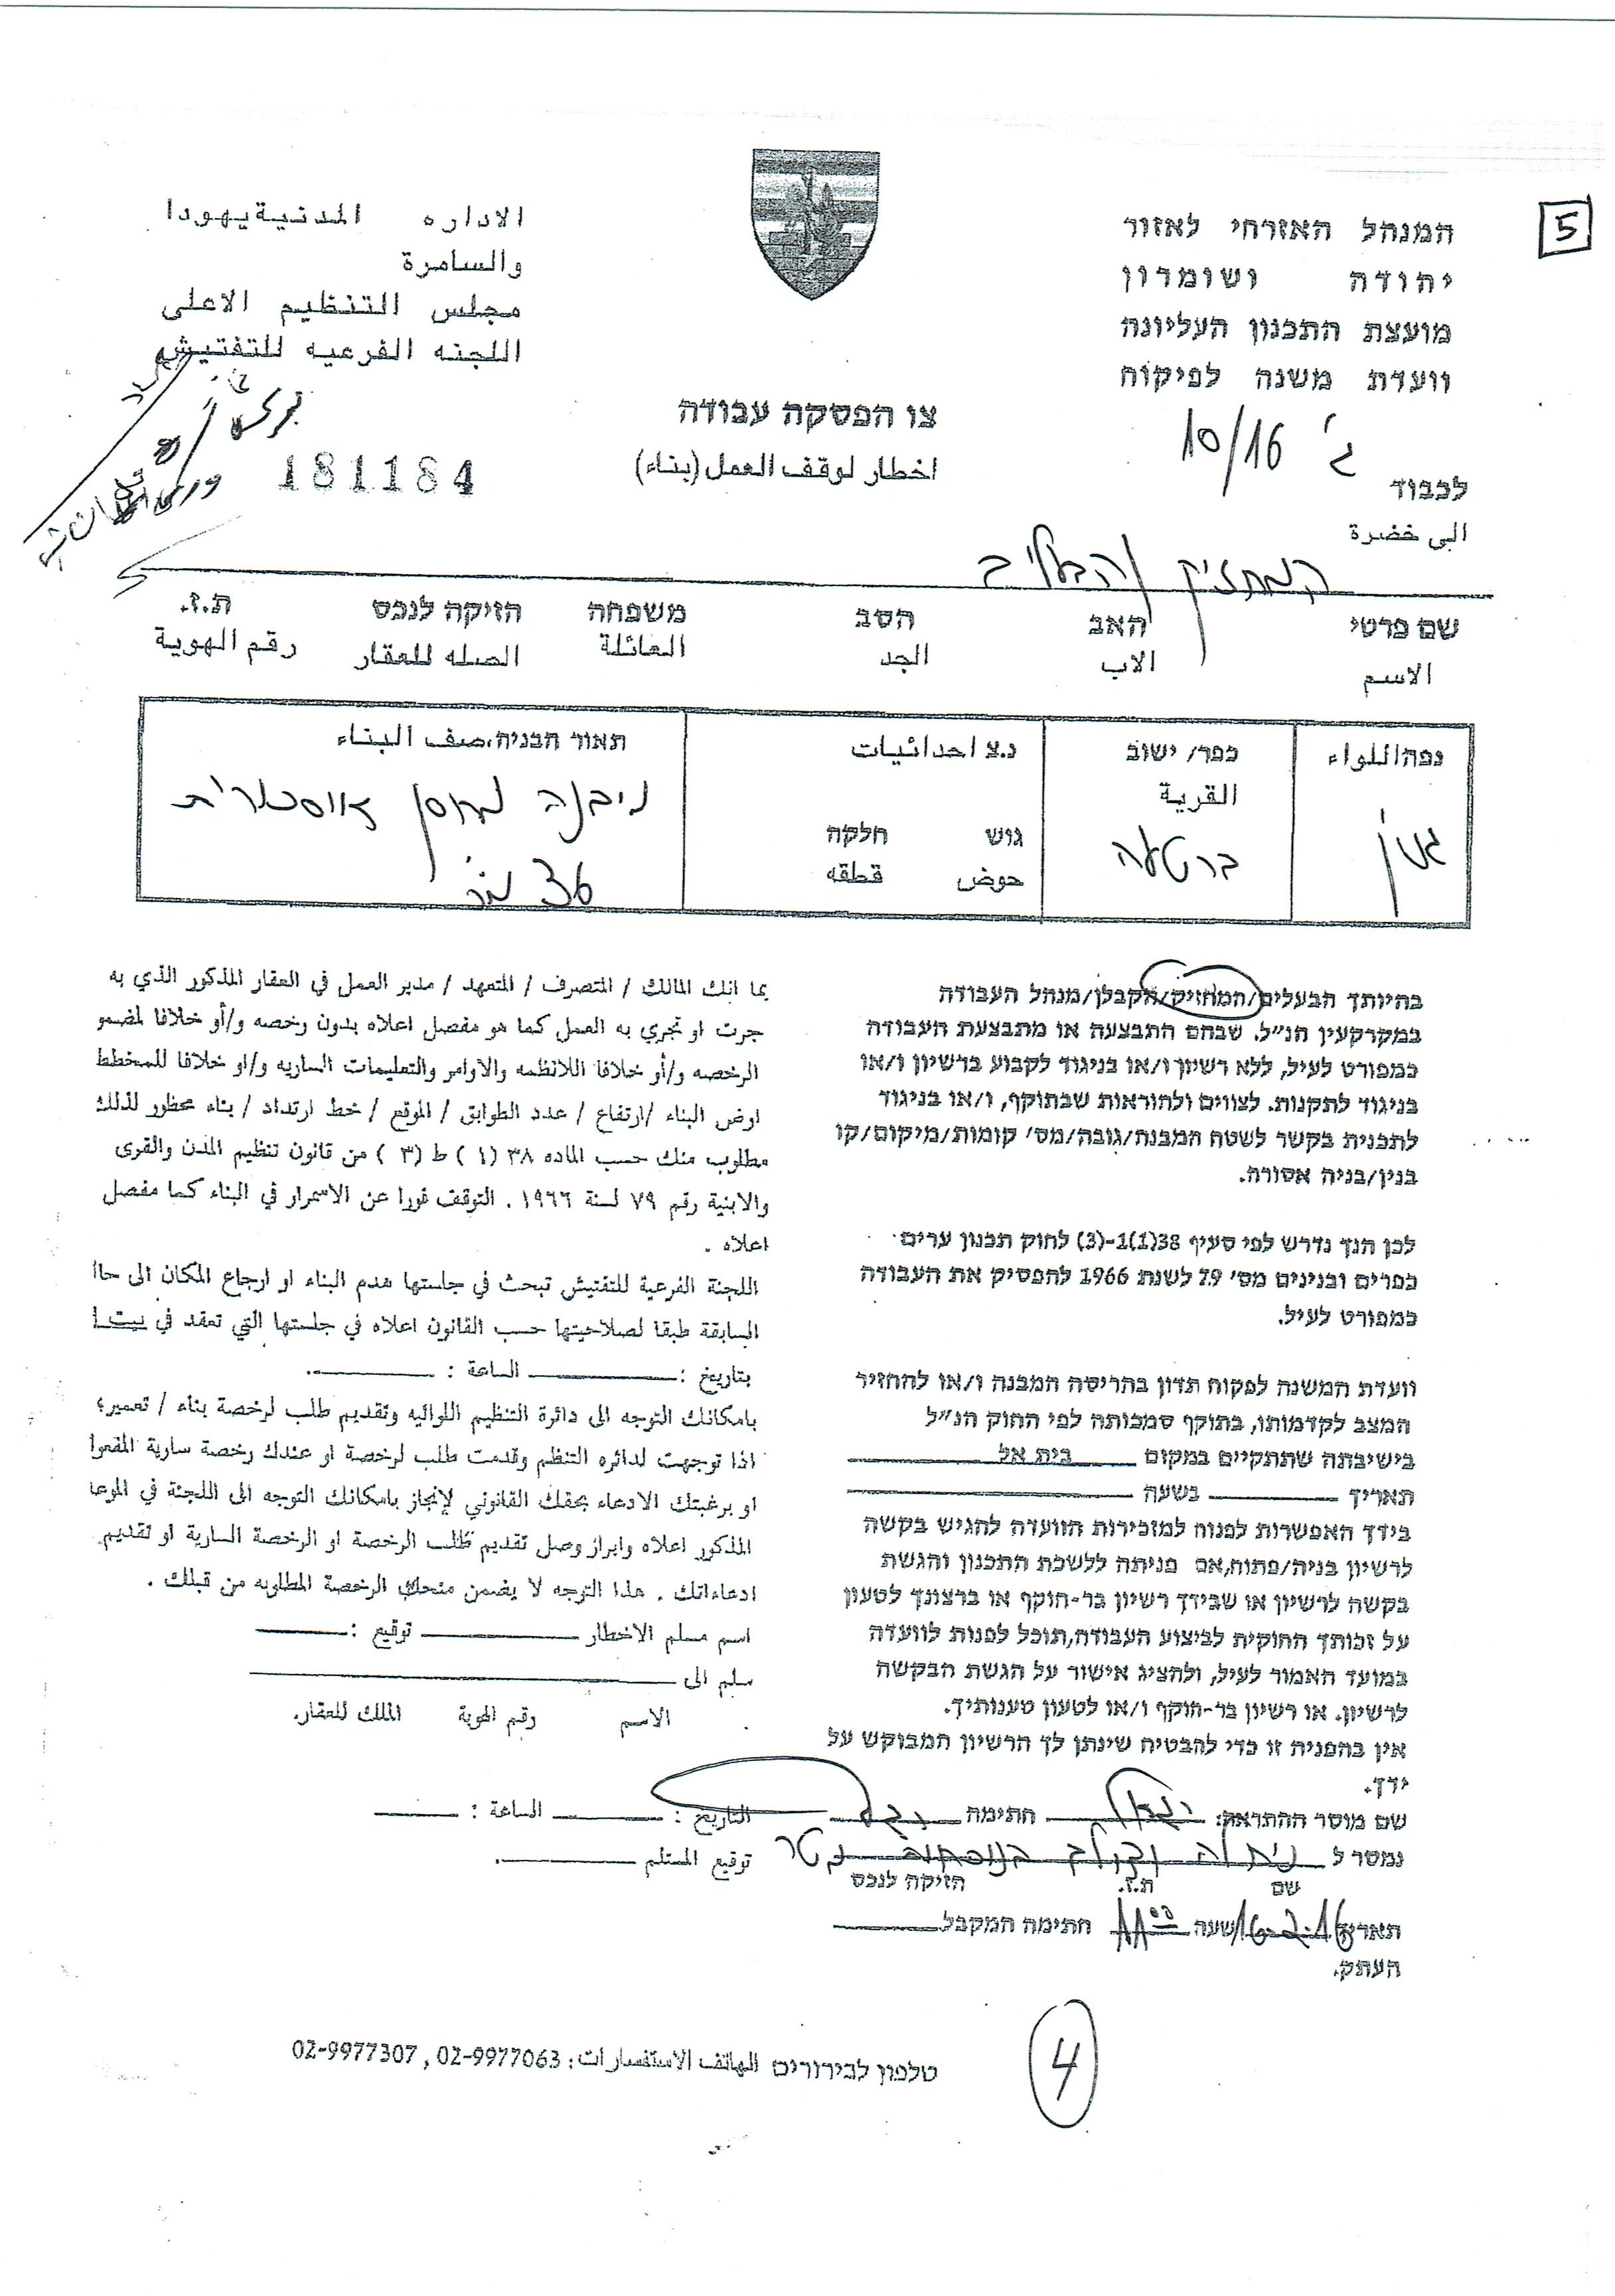 5
המנהל האזרחי לאזור
יהודה ושומרון
מועצת התכנון העליונה
וועדת משנה לפיקוח
الاداره المدنية يهودا
والسامرة
مجلس التنظيم الاعلى
اللجنه الفرعيه للتفتيش
צו הפסקה עבודה
اخطار لوقف العمل (بناء)
181184
ג' 10/16
לכבוד
الى حضرة
המחזיק / הבעלים
שם פרטי האב הסב משפחה הזיקה לנכס ת.ז.
الاسم الاب الجد العائلة الصله للعقار رقم الهوية
נפה/اللواء כפר/ ישוב נ.צ احداثيات תאור הבניה،صف البناء
القرية
גוש חלקה
حوض قطقه
ברטעה
36 מ"ר
בהיותך הבעלים/המחזיק/הקבלן/מנהל העבודה
במקרקעין הנ״ל. שבהם התבצעה או מתבצעת העבודה
כמפורט לעיל, ללא רשיון ו/או בניגוד לקבוע ברשיון ו/או
בניגוד לתקנות. לצווים ולהוראות שבתוקף, ו/או בניגוד
לתכנית בקשר לשטח המבנה/גובה/מס׳ קומות/מיקום/קו
בנין/בניה אסורה.
לכן הנך נדרש לפי סעיף 38(1)1-(3) לחוק תכנון ערים
כפרים ובנינים מס׳ 79 לשנת 1966 להפסיק את העבודה
כמפורט לעיל.
וועדת המשנה לפקוח תדון בהריסה המבנה ו/או להחזיר
המצב לקדמותו, בתוקף סמכותה לפי החוק הנ״ל
בישיבתה שתתקיים במקום בית אל
תאריך בשעה
בידך האפשרות לפנות למזכירות הוועדה להגיש בקשה
לרשיון בניה/פתוח,אם פניתה ללשכת התכנון והגשת
בקשה לרשיון או שבידך רשיון בר-תוקף או ברצונך לטעון
על זכותך החוקית לביצוע העבודה,תוכל לפנות לוועדה
במועד האמור לעיל, ולהציג אישור על הגשת הבקשה
לרשיון. או רשיון בר-תוקף ו/או לטעון טענותיך.
אין בהפניה זו כדי להבטיח שינתן לך הרשיון המבוקש על
ידך.
שם מוסר ההתראה: חתימה
נמסר ל
שם ת.ז. הזיקה לנכס
תאריך 16.2.16 שעה 11:00 חתימה המקבל
העתק.
بما انك المالك / المتصرف / المتعهد / مدير العمل في العقار المذكور الذي به
جرت او تجري به العمل كما هو مفصل اعلاه بدون رخصه و/أو خلافا لمضمو
الرخصه و/أو خلافا اللانظمه والاوامر والتعليمات الساريه و/او خلافا للمخطط
اوض البناء /ارتفاع / عدد الطوابق / الموقع / خط ارتداد / بناء محظور لذلك
مطلوب منك حسب الماده ٣٨ (١ ) ط (٣ ) من قانون تنظيم المدن والقرى
والابنية رقم ٧٩ لسنة ١٩٦٦ . التوقف فورا عن الاسمرار في البناء كما مفصل
اعلاه .
اللجنة الفرعية للتفتيش تبحث في جلستها هدم البناء او ارجاع المكان الى حاا
السابقة طبقا لصلاحيتها حسب القانون اعلاه في جلستها التي تعقد في بيت ا
بتاريخ : الساعة :
بامكانك التوجه الى دائرة التنظيم اللوائيه وتقديم طلب لرخصة بناء / تعمير؛
اذا توجهت لدائره التنظم وقدمت طلب لرخصة او عندك رخصة سارية المفعوا
او برغبتك الادعاء بحقك القانوني لإنجاز بامكانك التوجه الى اللجنة في الموعا
المذكور اعلاه وابراز وصل تقديم طلب الرخصة او الرخصة السارية او تقديم
ادعاءاتك . هذا التوجه لا يضمن منحك الرخصة المطلوبه من قبلك .
اسم مسلم الاخطار توقيع :
سلم الى
الاسم رقم الهوية المالك للعقار.
التاريخ : الساعة :
توقيع المستلم
4
טלפון לבירורים الهاتف الاستفسارات: 02-9977063 , 02-9977307